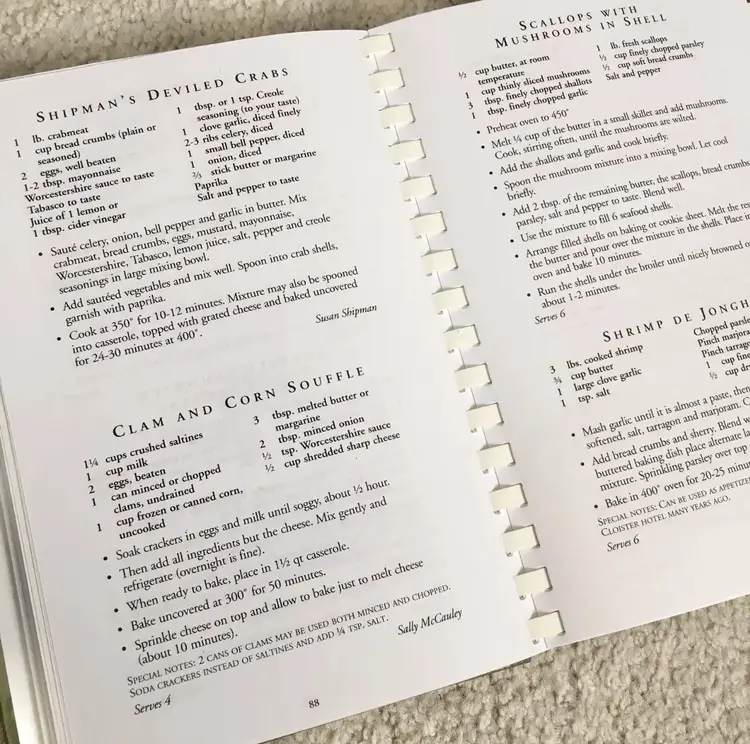 SHIPMAN'S DEVILED CRABS
1 lb. crabmeat
1 cup bread crumbs (plain or
seasoned)
2 eggs, well beaten
1-2 tbsp. mayonnaise
Worcestershire sauce to taste
Tabasco to taste
Juice of 1 lemon or
1 tbsp. cider vinegar
1 tbsp. or 1 tsp. Creole
seasoning (to your taste)
1 clove garlic, diced finely
2-3 ribs celery, diced
1 small bell pepper, diced
1 onion, diced
⅔ stick butter or margarine
Paprika
Salt and pepper to taste
• Sauté celery, onion, bell pepper and garlic in butter. Mix
crabmeat, bread crumbs, eggs, mustard, mayonnaise,
Worcestershire, Tabasco, lemon juice, salt, pepper and creole
seasonings in large mixing bowl.
• Add sautéed vegetables and mix well. Spoon into crab shells,
garnish with paprika.
• Cook at 350° for 10-12 minutes. Mixture may also be spooned
into casserole, topped with grated cheese and baked uncovered
for 24-30 minutes at 400°.
Susan Shipman
CLAM AND CORN SOUFFLE
1¼ cups crushed saltines
1 cup milk
2 eggs, beaten
1 can minced or chopped
clams, undrained
1 cup frozen or canned corn,
uncooked
3 tbsp. melted butter or
margarine
2 tbsp. minced onion
½ tsp. Worcestershire sauce
½ cup shredded sharp cheese
• Soak crackers in eggs and milk until soggy, about ½ hour.
• Then add all ingredients but the cheese. Mix gently and
refrigerate (overnight is fine).
• When ready to bake, place in 1½ qt casserole.
• Bake uncovered at 300° for 50 minutes.
• Sprinkle cheese on top and allow to bake just to melt cheese
(about 10 minutes).
SPECIAL NOTES: 2 CANS OF CLAMS MAY BE USED BOTH MINCED AND CHOPPED.
SODA CRACKERS INSTEAD OF SALTINES AND ADD ¼ TSP. SALT.
Sally McCauley
Serves 4
88
SCALLOPS WITH
MUSHROOMS IN SHELL
½ cup butter, at room
temperature
1 cup thinly sliced mushrooms
3 tbsp. finely chopped shallots
1 tbsp. finely chopped garlic
1 lb. fresh scallops
½ cup finely chopped parsley
½ cup soft bread crumbs
Salt and pepper
• Preheat oven to 450°
• Melt ¼ cup of the butter in a small skillet and add mushrooms.
Cook, stirring often, until the mushrooms are wilted.
• Add the shallots and garlic and cook briefly.
• Spoon the mushroom mixture into a mixing bowl. Let cool
briefly.
• Add 2 tbsp. of the remaining butter, the scallops, bread crumbs
parsley, salt and pepper to taste. Blend well.
• Use the mixture to fill 6 seafood shells.
• Arrange filled shells on baking or cookie sheet. Melt the
the butter and pour over the mixture in the shells. Place
oven and bake 10 minutes.
• Run the shells under the broiler until nicely browned
about 1-2 minutes.
Serves 6
SHRIMP DE JONGH
3 lbs. cooked shrimp
¾ cup butter
1 large clove garlic
1 tsp. salt
Chopped
Pinch
Pinch
1 cup
½ cup
• Mash garlic until it is almost a paste, then
softened, salt, tarragon and marjoram.
• Add bread crumbs and sherry. Blend
buttered baking dish place alternate
mixture. Sprinkling parsley over top
• Bake in 400° oven for 20-25
SPECIAL NOTES: CAN BE USED AS
CLOISTER HOTEL MANY YEARS AGO.
Serves 6